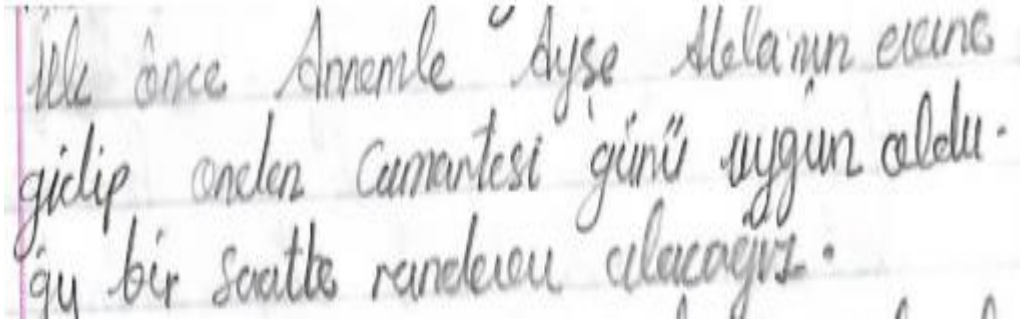 ilk önce Annemle Ayşe Abla'nın evine
gidip ondan Cumartesi günü uygun oldu-
ğu bir saatte randevu alacağız.